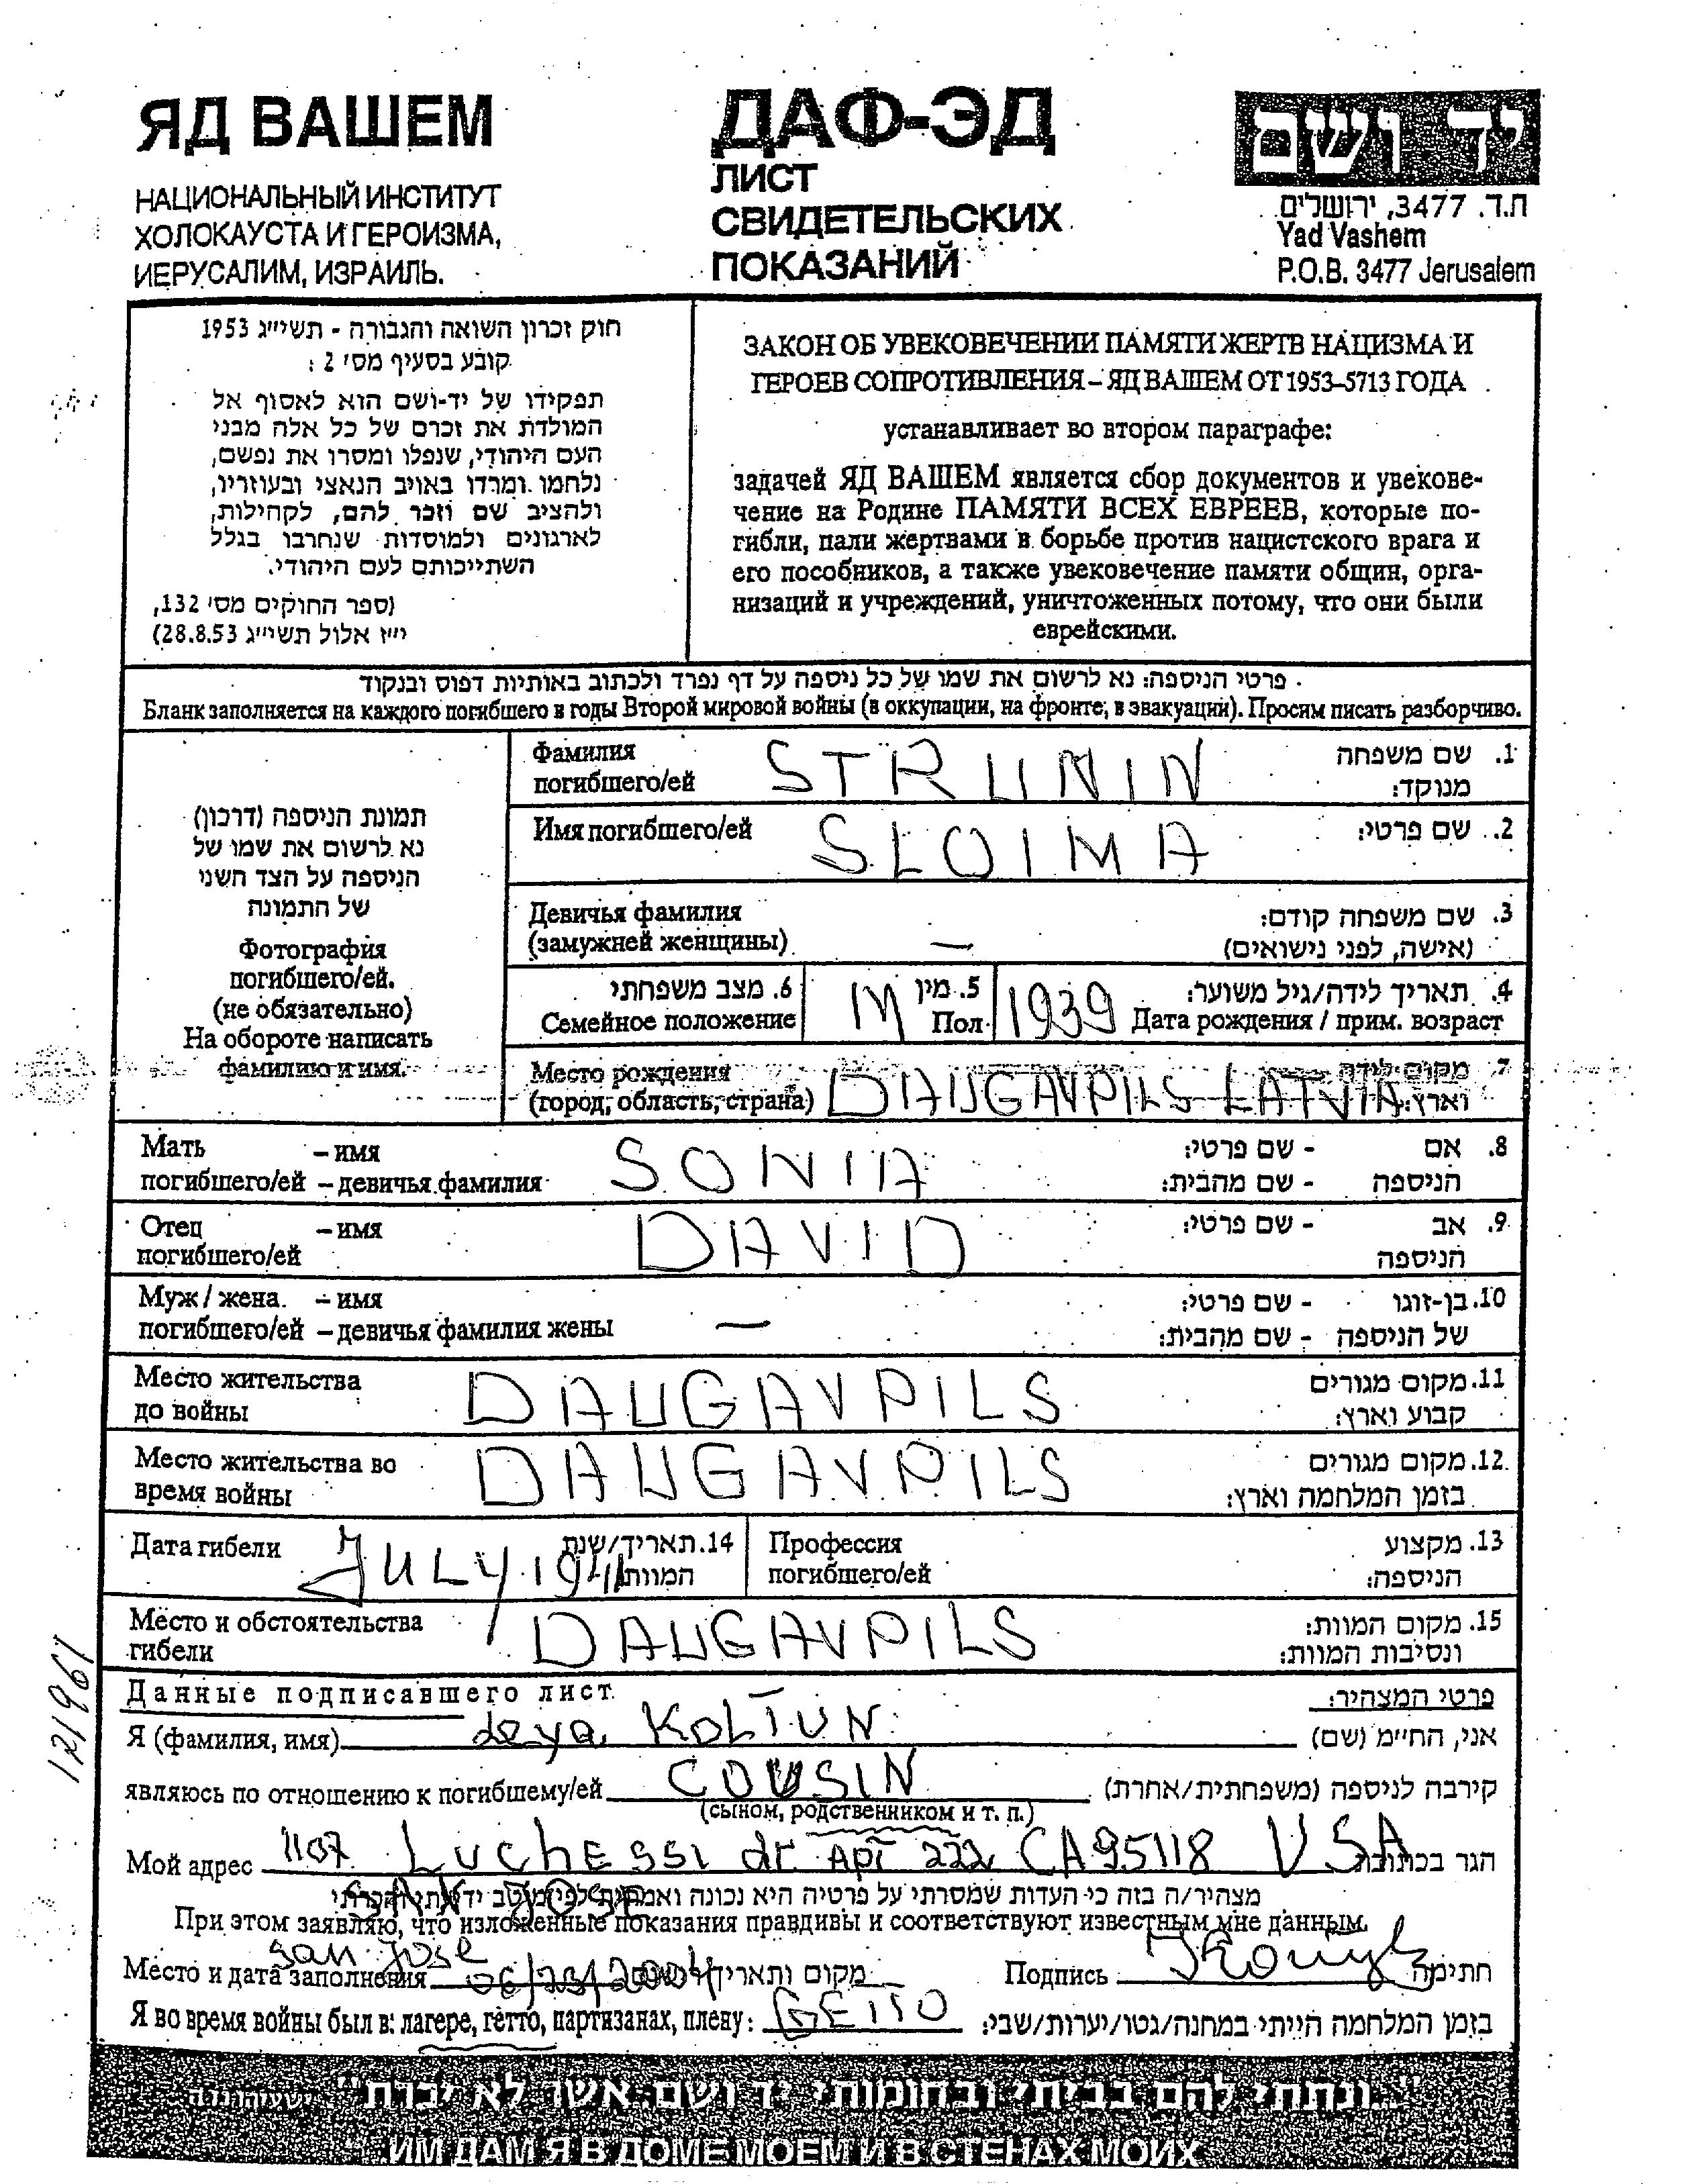 ЯД ВАШЕМ
НАЦИОНАЛЬНЫЙ ИНСТИТУТ
ХОЛОКАУСТА И ГЕРОИЗМА,
ИЕРУСАЛИМ, ИЗРАИЛЬ.
ДАФ-ЭД
ЛИСТ
СВИДЕТЕЛЬСКИХ
ПОКАЗАНИЙ
יד ושם
ת.ד. 3477, ירושלים
Yad Vashem
P.O.B. 3477 Jerusalem
חוק זכרון השואה והגבורה - תשי״ג 1953
קובע בסעיף מס׳ 2 :
תפקידו של יד-ושם הוא לאסוף אל
המולדת את זכרם של כל אלה מבני
העם היהודי, שנפלו ומסרו את נפשם,
נלחמו ומרדו באויב הנאצי ובעוזריו,
ולהציב שם וזכר להם, לקהילות,
לארגונים ולמוסדות שנחרבו בגלל
השתייכותם לעם היהודי.
(ספר החוקים מס׳ 132,
י״ז אלול תשי״ג 28.8.53)
ЗАКОН ОБ УВЕКОВЕЧЕНИИ ПАМЯТИ ЖЕРТВ НАЦИЗМА И
ГЕРОЕВ СОПРОТИВЛЕНИЯ – ЯД ВАШЕМ ОТ 1953–5713 ГОДА
устанавливает во втором параграфе:
задачей ЯД ВАШЕМ является сбор документов и увекове-
чение на Родине ПАМЯТИ ВСЕХ ЕВРЕЕВ, которые по-
гибли, пали жертвами в борьбе против нацистского врага и
его пособников, а также увековечение памяти общин, орга-
низаций и учреждений, уничтоженных потому, что они были
еврейскими.
פרטי הניספה: נא לרשום את שמו של כל ניספה על דף נפרד ולכתוב באותיות דפוס ובנקוד
Бланк заполняется на каждого погибшего в годы Второй мировой войны (в оккупации, на фронте, в эвакуации). Просим писать разборчиво.
תמונת הניספה (דרכון)
נא לרשום את שמו של
הניספה על הצד השני
של התמונה
Фотография
погибшего/ей.
(не обязательно)
На обороте написать
фамилию и имя.
Фамилия погибшего/ей STRUNIN 1. שם משפחה מנוקד:
Имя погибшего/ей SLOIMA 2. שם פרטי:
Девичья фамилия (замужней женщины) — 3. שם משפחה קודם: (אישה, לפני נישואים)
6. מצב משפחתי Семейное положение M 5. מין Пол 1939 4. תאריך לידה/גיל משוער: Дата рождения / прим. возраст
Место рождения (город, область, страна) DAUGAVPILS LATVIA 7. מקום לידה וארץ:
Мать – имя SONIA 8. אם - שם פרטי:
погибшего/ей – девичья фамилия הניספה - שם מהבית:
Отец – имя DAVID 9. אב - שם פרטי:
погибшего/ей הניספה
Муж / жена – имя 10. בן-זוגו - שם פרטי:
погибшего/ей – девичья фамилия жены — של הניספה - שם מהבית:
Место жительства до войны DAUGAVPILS 11. מקום מגורים קבוע וארץ:
Место жительства во время войны DAUGAVPILS 12. מקום מגורים בזמן המלחמה וארץ:
Дата гибели JULY 1941 14. תאריך/שנת המוות Профессия погибшего/ей 13. מקצוע הניספה:
Место и обстоятельства гибели DAUGAVPILS 15. מקום המוות: ונסיבות המוות:
121961
Данные подписавшего лист פרטי המצהיר:
Я (фамилия, имя) Leya KOLTUN אני, החי״מ (שם)
являюсь по отношению к погибшему/ей COUSIN קירבה לניספה (משפחתית/אחרת)
(сыном, родственником и т. п.)
Мой адрес 1107 LUCHESSI dr Apt 222 CA 95118 USA הגר בכתובת
SAN JOSE
מצהיר/ה בזה כי העדות שמסרתי על פרטיה היא נכונה ואמיתית לפי מיטב ידיעתי והכרתי
При этом заявляю, что изложенные показания правдивы и соответствуют известным мне данным.
San Jose
Место и дата заполнения 06/23/2004 מקום ותאריך Подпись חתימה
Я во время войны был в: лагере, гетто, партизанах, плену: GETTO בזמן המלחמה הייתי במחנה/גטו/יערות/שבי:
"...ונתתי להם בביתי ובחומותי יד ושם... אשר לא יכרת"
ИМ ДАМ Я В ДОМЕ МОЕМ И В СТЕНАХ МОИХ